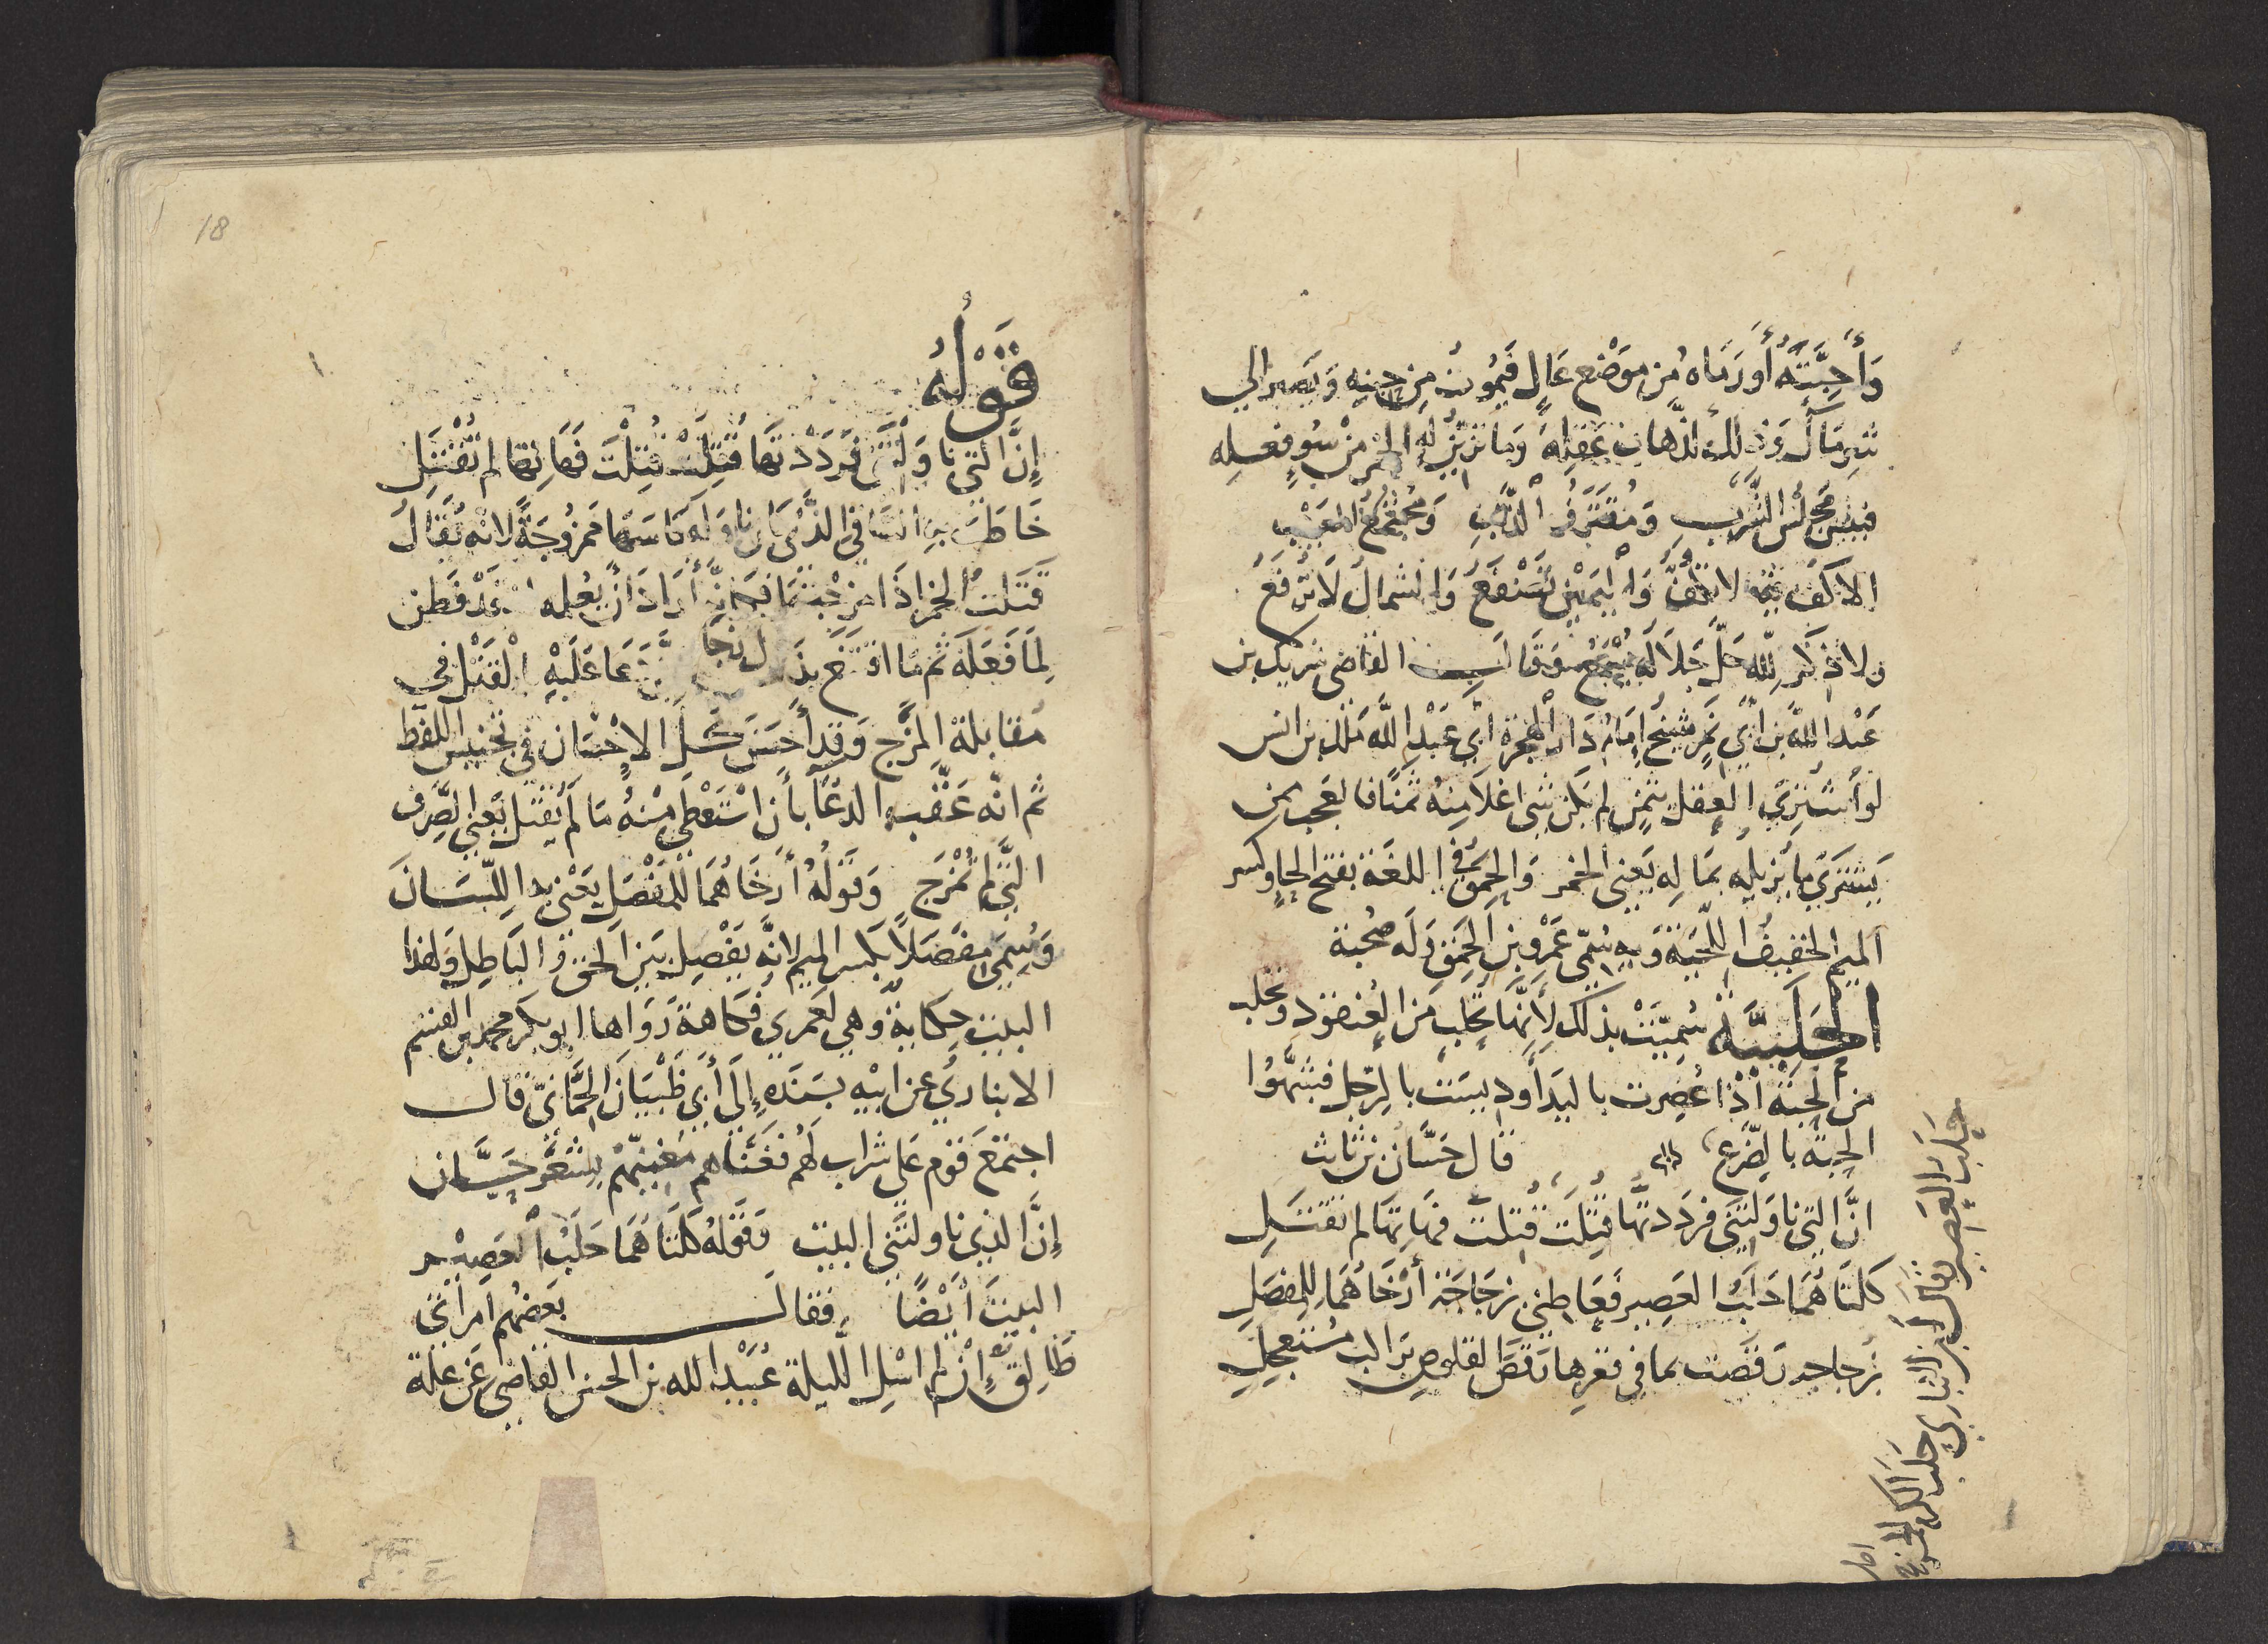 وَأَحِبَّتُهُ أَو رَمَاه مِن مَوْضع عَالٍ فَيَمُوتُ مِن حِينِهِ وَيَصير الى
شرِ مَآل وَذلك لذهاب عَقلهِ وَما تزين له الخمر مِنْ سُوءِ فعله
فبئسَ مَجْلسُ الشَّرْبِ وَمُقْتَرَفُ الذنبِ وَمُجْتَمَعُ العَيْبِ
الاكف لا تكُفُّ وَاليَمِينُ تَسْفَعُ وَالشمالُ لَا تُرفَعُ
ولا ذِكرَ لِلّه جَلَّ جَلَالُه يُسْمَعُ وَقَالَ القاضى شريك بن
عَبْد اللّه بن ابي نَمِر شيخ اِمَام دَار الهجرة ابي عَبْد اللّه مٰلك بن انس
لو اشترِىَ العقل بثمنٍ لم يكن شى اغلا منهُ ثمنًا فالعجب ممن
يَشترى ما يُزيله بمَالِه يَعنى الخمر وَالحَمِقُ فى اللغة بفتح الحاوكسر
الميم الخفيفُ اللحْيَة وَبِهِ سُمّى عَمْرو بن الحَمِق وَله صُحْبة
الحَلَبيَّة سُمِّيَتْ بذلك لِأَنَّهَا تُحلَب مِن العُنقودِ وتحلب
من الحبَّة اذا عُصِرت باليَدِ أو ديسَت بالرِّجل فشبَّهُوا
الحبة بالضرع قال حَسَّان بن ثابت
انَّ التي نَاوَلْتَني فَردَدتهَا قُتِلَت قُتِلتَ فَهَاتِهَا لم تُقتَلِ
كلتَاهُمَا حَلَبُ العَصِير فَعَاطِني بزجَاجَة أرْخَاهُمَا لِلمِفصَلِ
بزجاجه رقصت بما في قعرها رَقصَ القلوص براكب مُستعجلِ
حَلَب العَصِير قال ابن الانبارى حَلَب الكرم
قَوْلُهُ
إِنَّ التي نَاوَلْتَني فَرَدَدْتهَا قُتِلَتْ قُتِلْتَ فَهَاتِهَا لم تُقْتَلِ
خَاطَبَ بهِ السَّاقِي الذي كان ناوَله كاسَهَا مَمزُوجَةً لانه يُقالُ
قَتَلتُ الخمر اذَا مزجْتهَا فكَأنَّهُ أرَادَ أن يُعْلِمه انه قَدْ فَطِن
لِمَا فَعَلَهُ ثم مَا اقتنعَ بذَلك دَعَا عَلَيْهِ بالقَتْل في
مُقابلة المَزْج وَقد أحسَن كُلَّ الاحْسَان في تجنيس اللفظ
ثم انّه عَقَّب الدعَآ بأن اسْتَعْطَى مِنْهُ مَا لَم يُقتل يَعْني الصِّرف
التي لم تُمْزَج وَقَولُهُ أَرخَاهُمَا لِلمِفْصَلِ يَعْني به اللِّسَانَ
وَسُمِّىَ مِفْصَلًا بكسر الميم لانَّه يَفْصِل بَيْن الحَق وَالبَاطِل وَلهذا
البيت حِكاية وَهي لعَمري فكاهة رَوَاهَا ابو بكر محمد بن القسم
الانباري عن ابيْه بسَنَدِهِ إِلَى أبى ظَبْيَان الحِمَّانىّ قال
اجتمعَ قوم عَلى شراب لهُم فَغَنَّاهم مُغنّيهم بِشِعْر حَسَّان
إِنَّ الذي ناولتَني البيت وَقَوْلهُ كلتَاهُمَا حَلَبُ العَصِيْر
البيت أيضًا فقال بَعضُهم امرأتي
طَالِق إِن لم اسْلِ اللَّيلة عُبَيْد الله بن الحسن القاضي عَن علة
18